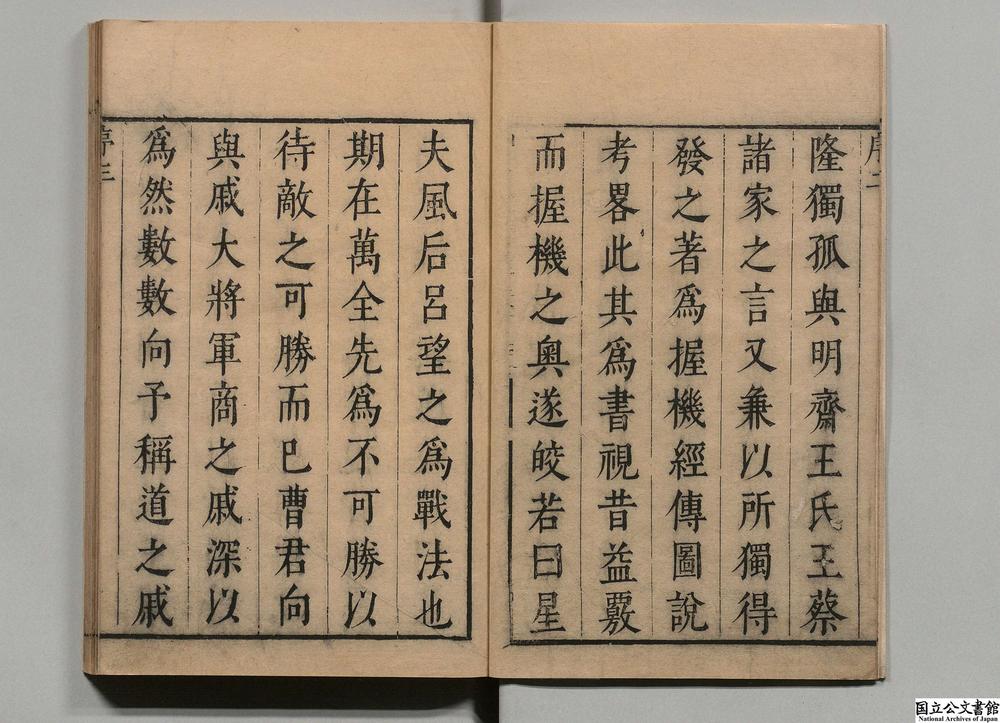 序二
隆獨孤與明齋王氏王蔡
諸家之言又兼以所獨得
發之著爲握機經傳圖說
考畧此其爲書視昔益覈
而握機之奧遂皎若日星
夫風后呂望之爲戰法也
期在萬全先爲不可勝以
待敵之可勝而已曹君向
與戚大將軍商之戚深以
爲然數數向予稱道之戚
序三
国立公文書館
National Archives of Japan